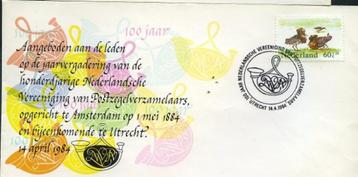 100 jaar
Aangeboden aan de leden
op de jaarvergadering van de
honderdjarige Nederlandsche
Vereeniging van Postzegelverzamelaars,
opgericht te Amsterdam op 1 mei 1884
en bijeenkomende te Utrecht.
14 april 1984
Nederland
60
100 JAAR NEDERLANDSCHE VEREENIGING VAN POSTZEGELVERZAMELAARS
UTRECHT 14.4.1984